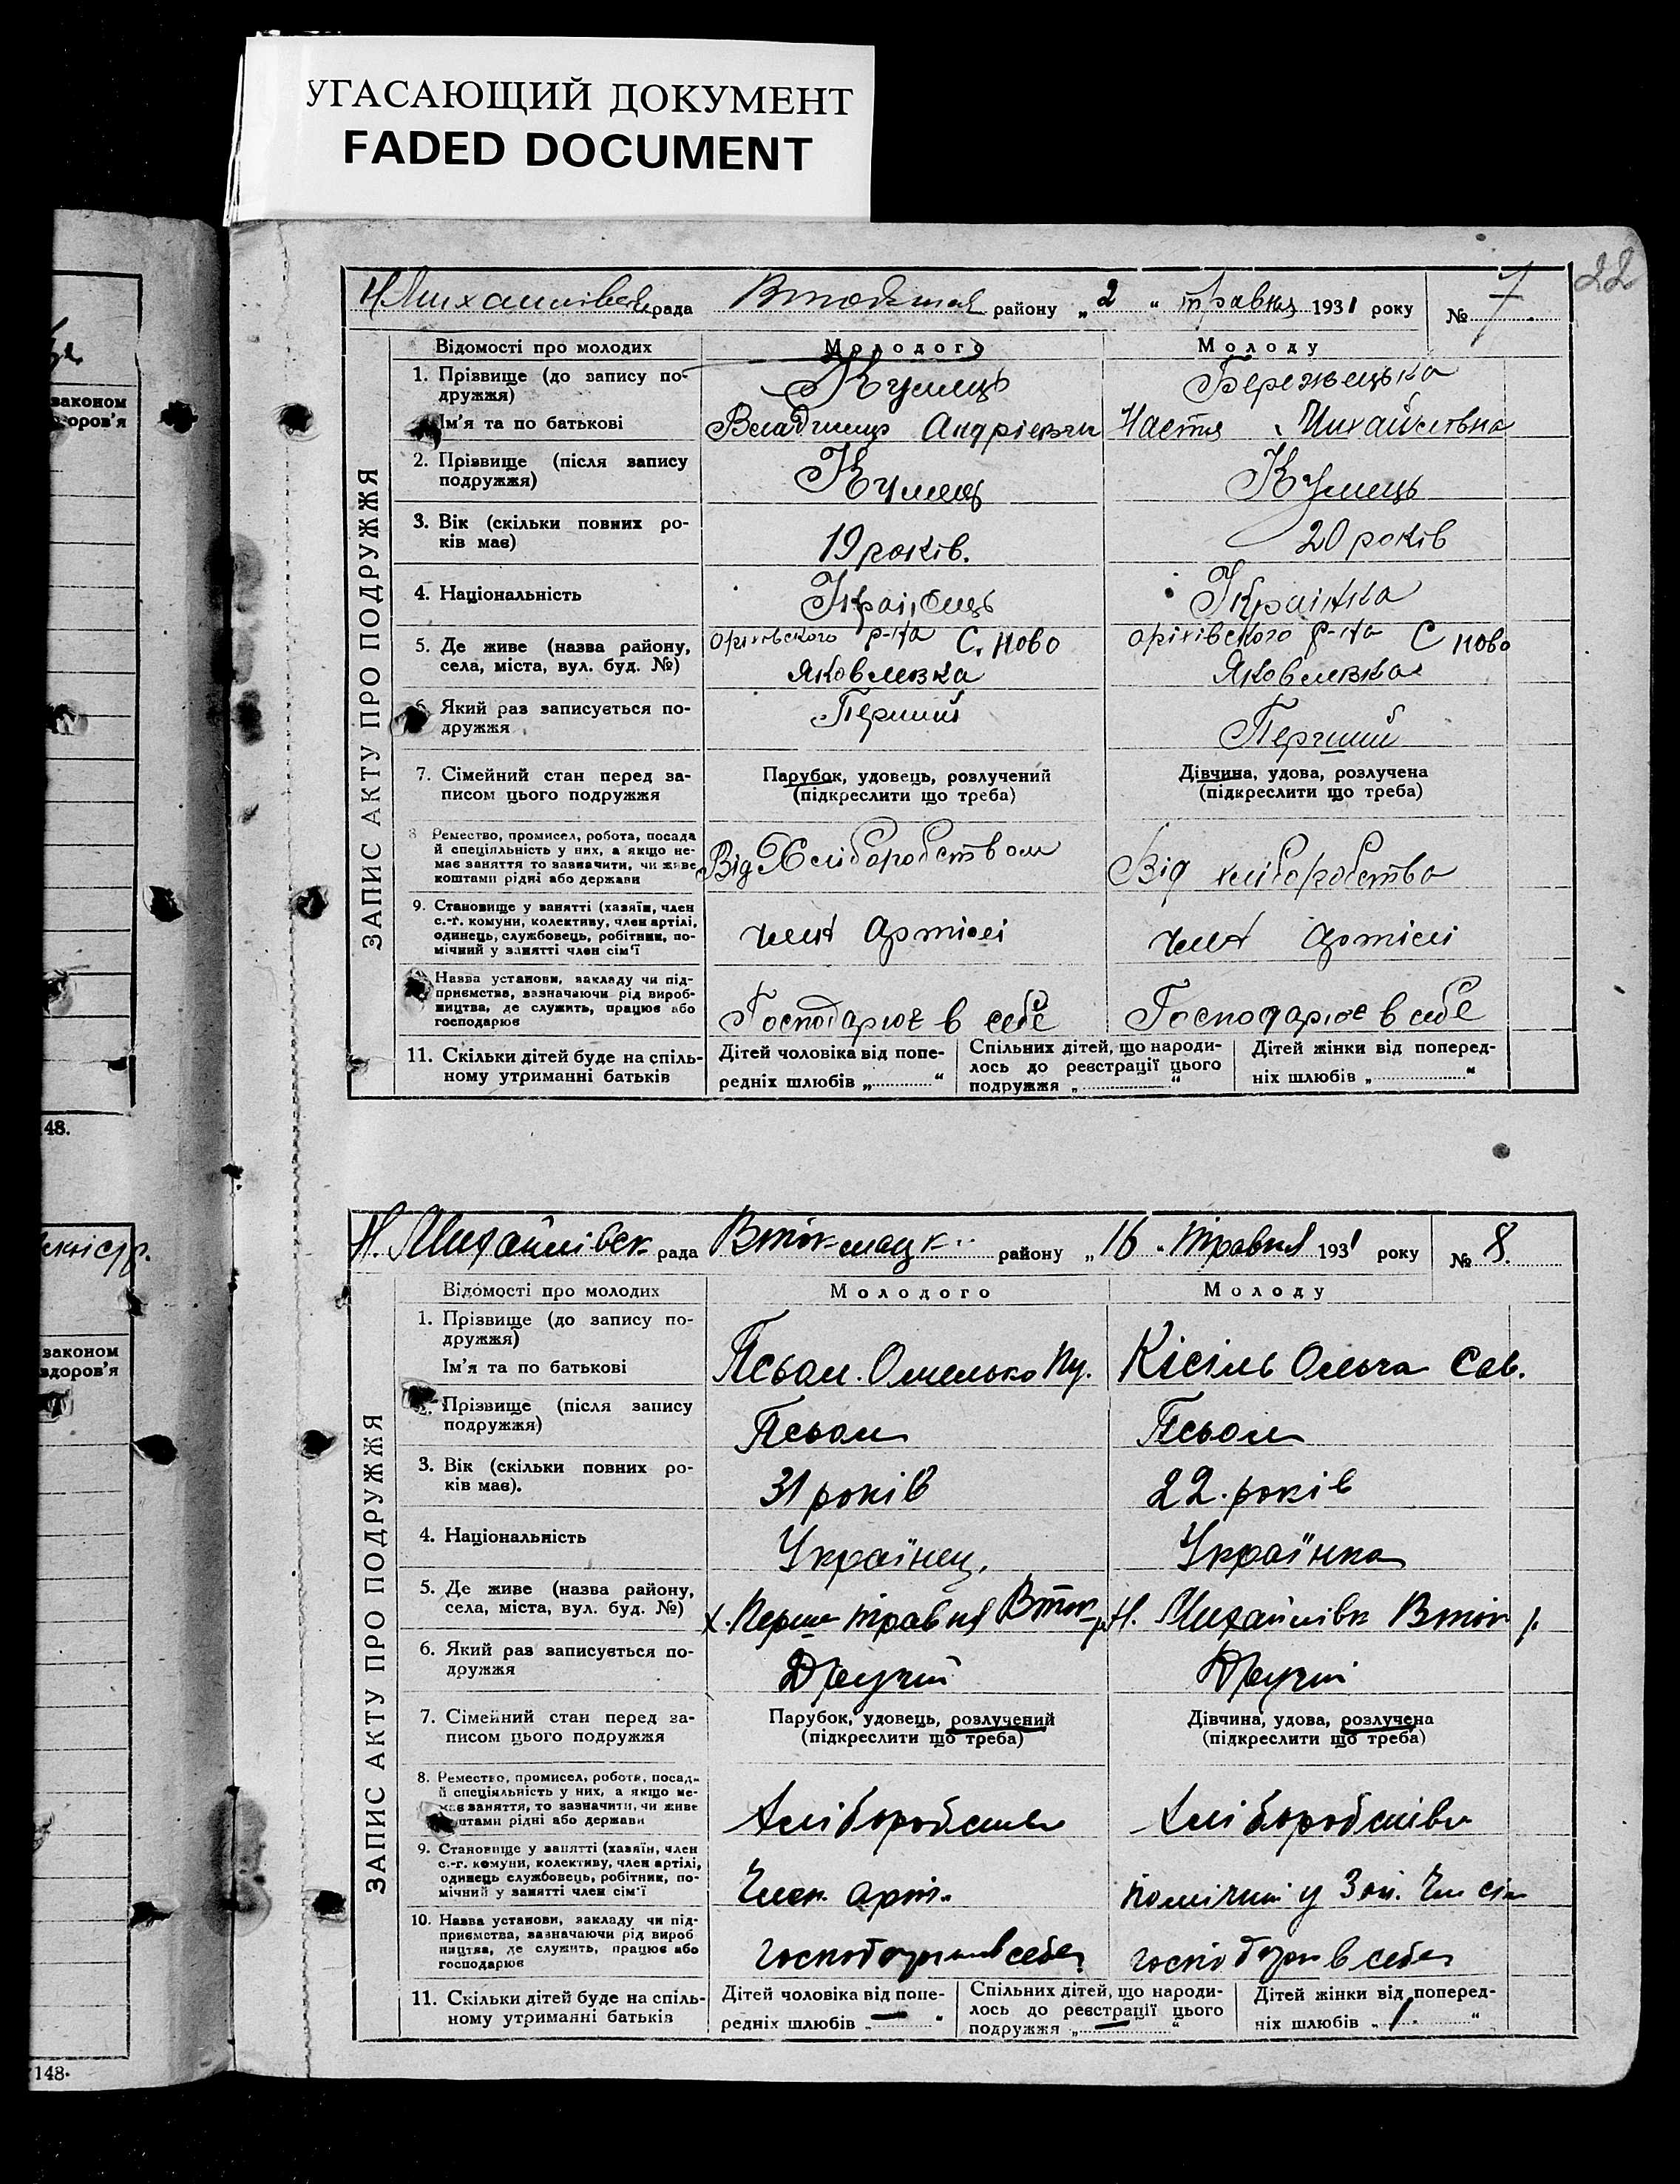 УГАСАЮЩИЙ ДОКУМЕНТ
FADED DOCUMENT
22
Н Михайлівська рада району „2“ травня 1931 року № 7
ЗАПИС АКТУ ПРО ПОДРУЖЖЯ
Відомості про молодих Молодого Молоду
1. Прізвище (до запису подружжя) Кумець Бережецька
Ім'я та по батькові Владимир Андрієвич Настя Михайлівна
2. Прізвище (після запису подружжя) Кумець Кумець
3. Вік (скільки повних років має) 19 років. 20 років
4. Національність Українець Українка
5. Де живе (назва району, села, міста, вул. буд. №) Оріхівського р-на С. Ново Яковлевка Оріхівського р-на С Ново Яковлевка
6. Який раз записується подружжя Перший Перший
7. Сімейний стан перед записом цього подружжя Парубок, удовець, розлучений (підкреслити що треба) Дівчина, удова, розлучена (підкреслити що треба)
8 Ремество, промисел, робота, посада й спеціяльність у них, а якщо немає заняття то зазначити, чи живе коштами рідні або держави Від Хліборобством Від хліборобства
9. Становище у занятті (хазяїн, член с.-г. комуни, колективу, член артілі, одинець, службовець, робітник, помічний у занятті член сім'ї член Артілі член Артілі
Назва установи, закладу чи підприємства, зазначаючи рід виробництва, де служить, працює або господарює Господарює в себе Господарює в себе
11. Скільки дітей буде на спільному утриманні батьків Дітей чоловіка від попередніх шлюбів „ “ Спільних дітей, що народилось до реєстрації цього подружжя „ “ Дітей жінки від попередніх шлюбів „ “
Н. Михайлівск рада Вток-мацк району „16“ травня 1931 року № 8.
ЗАПИС АКТУ ПРО ПОДРУЖЖЯ
Відомості про молодих Молодого Молоду
1. Прізвище (до запису подружжя)
Ім'я та по батькові Псьол. Омелько Кісіль Ольга Сав.
2. Прізвище (після запису подружжя) Псьол Псьол
3. Вік (скільки повних років має). 31 років 22. років
4. Національність Українец. Українка
5. Де живе (назва району, села, міста, вул. буд. №) х. Перше травня Вток-р Н. Михайлівк Вток р.
6. Який раз записується подружжя Другий Другий
7. Сімейний стан перед записом цього подружжя Парубок, удовець, розлучений (підкреслити що треба) Дівчина, удова, розлучена (підкреслити що треба)
8. Ремество, промисел, робота, посада й спеціяльність у них, а якщо немає заняття, то зазначити, чи живе коштами рідні або держави Хліборобство Хліборобство
9. Становище у занятті (хазяїн, член с.-г. комуни, колективу, член артілі, одинець службовець, робітник, помічний у занятті член сім'ї Член. Арт. помічний у Зан. Чл сім
10. Назва установи, закладу чи підприємства, зазначаючи рід виробництва, де служить, працює або господарює в себе в себе
11. Скільки дітей буде на спільному утриманні батьків Дітей чоловіка від попередніх шлюбів „—“ Спільних дітей, що народилось до реєстрації цього подружжя „—“ Дітей жінки від попередніх шлюбів „1.“
законом
здоров'я
48.
законом
здоров'я
148.